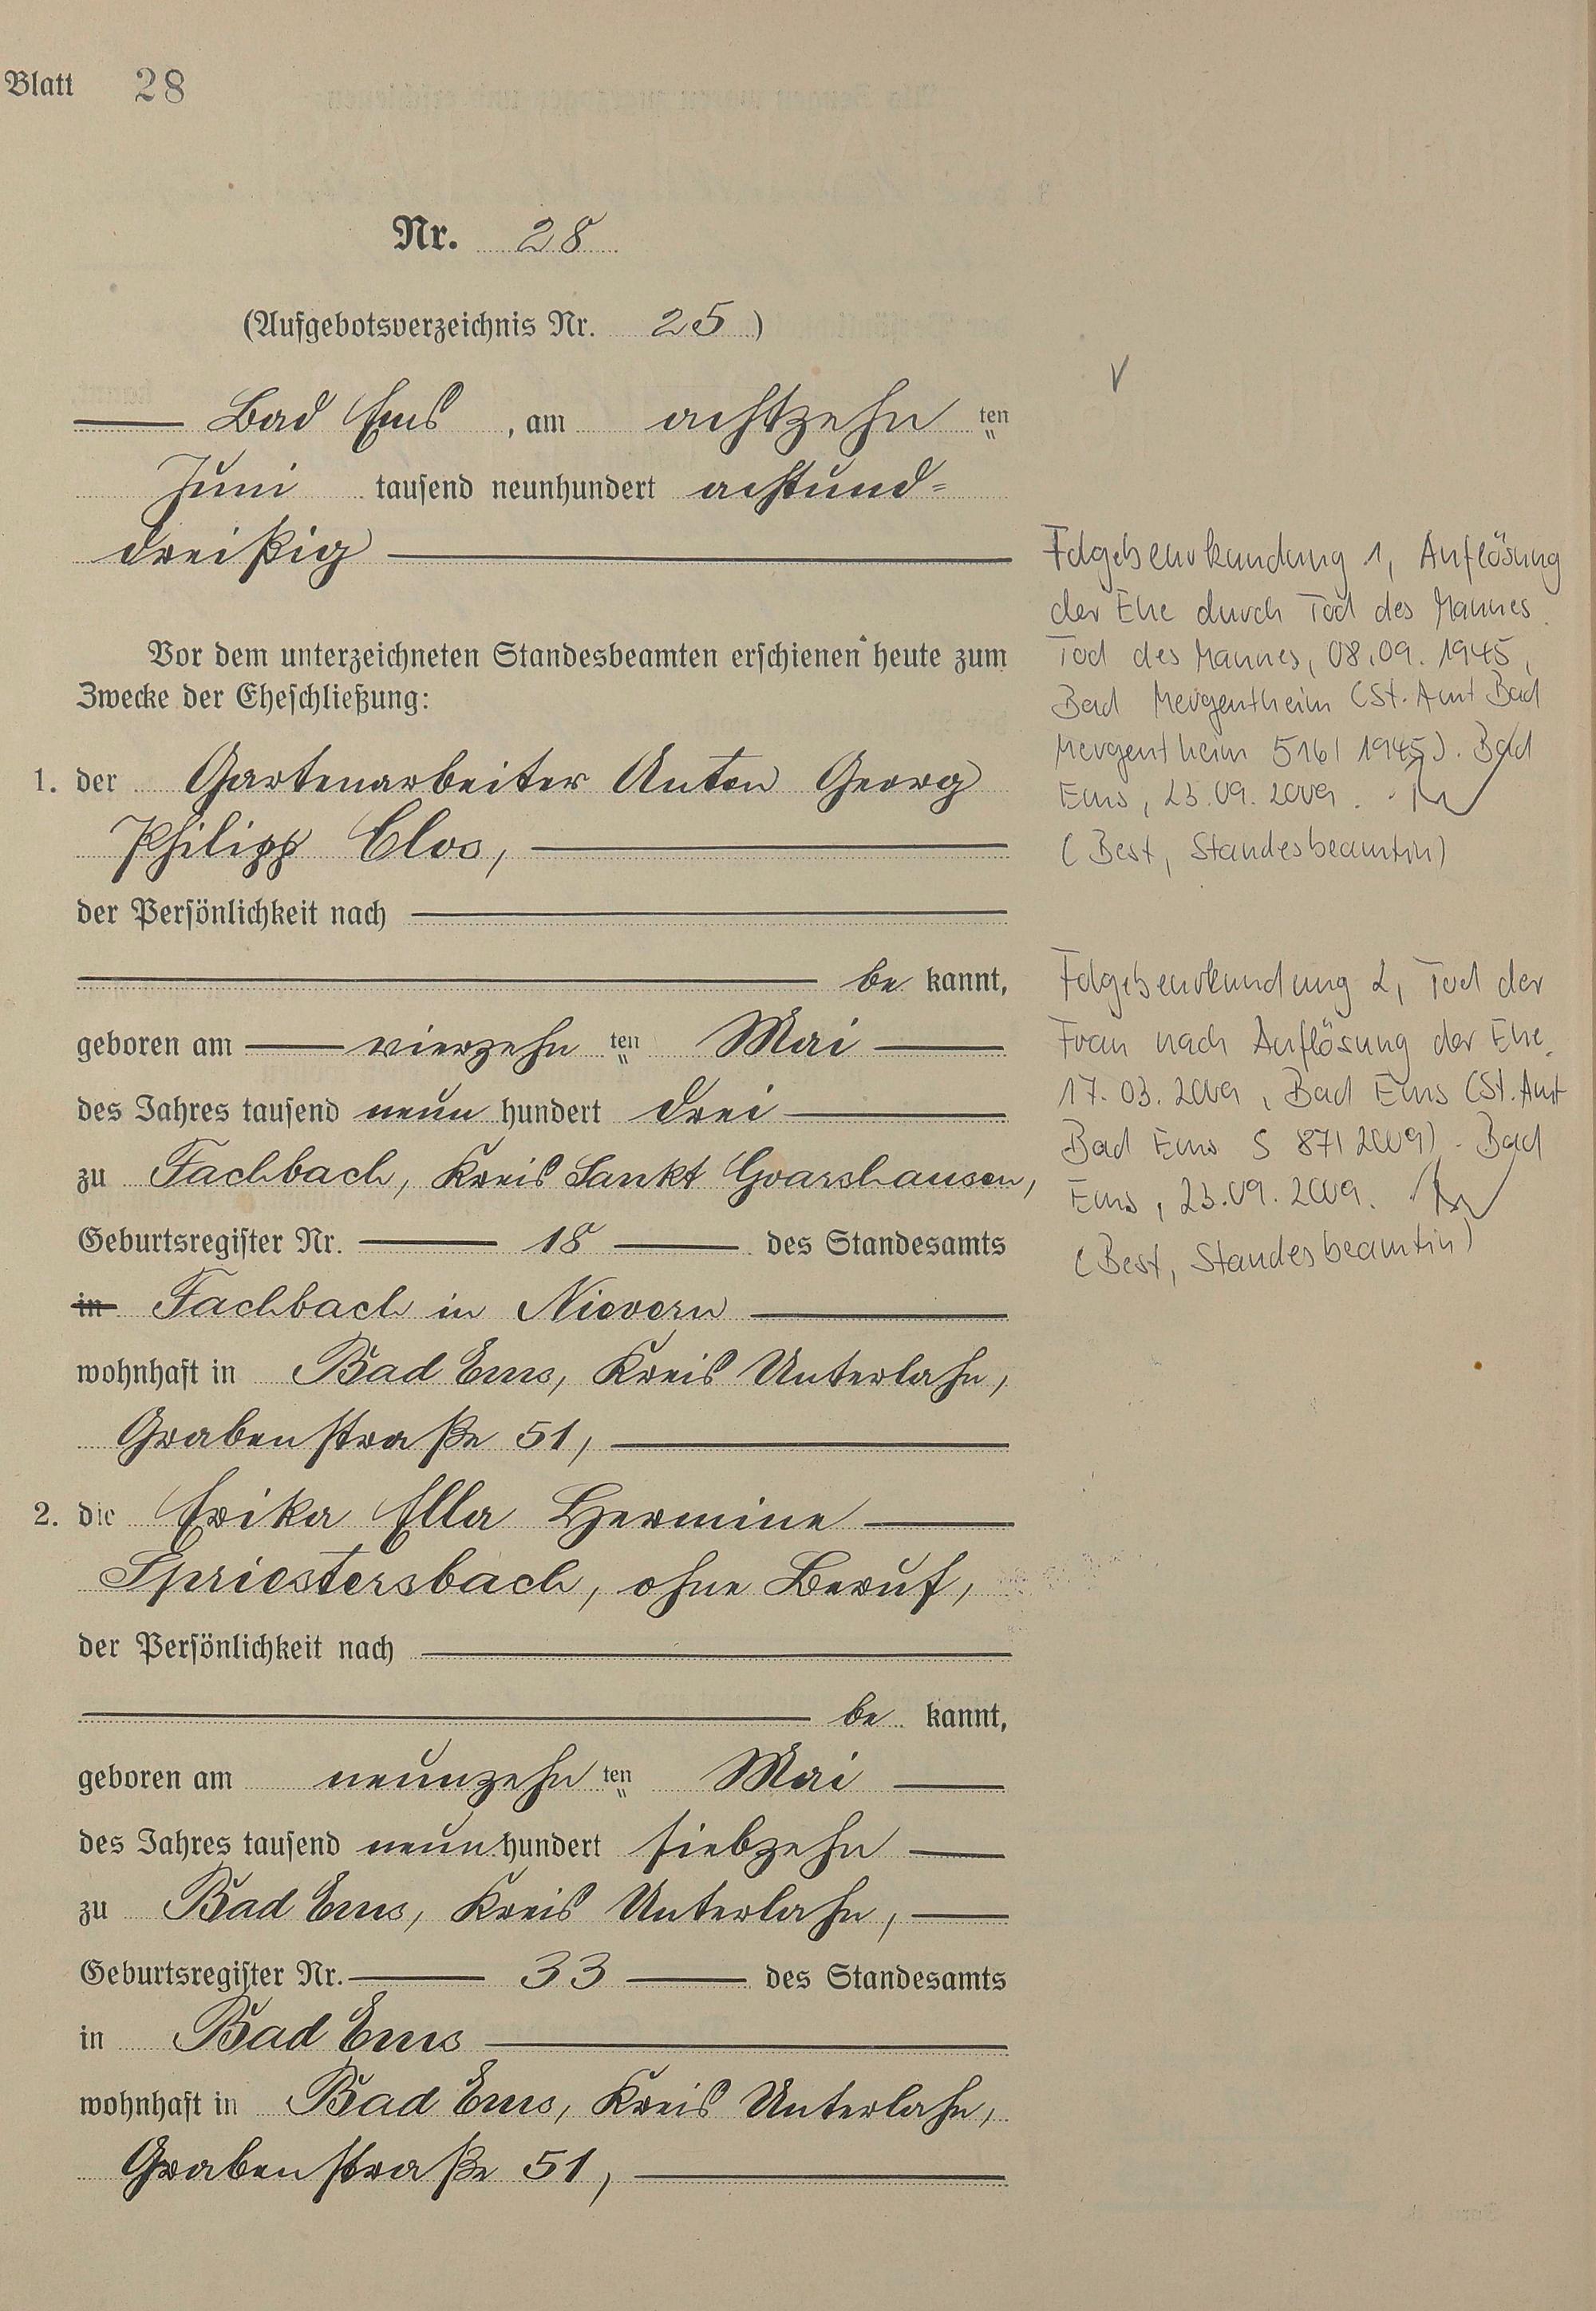 Blatt 28
Nr. 28
(Aufgebotsverzeichnis Nr. 25)
Bad Ems, am achtzehn ten
Juni tausend neunhundert achtund=
dreißig
Vor dem unterzeichneten Standesbeamten erschienen heute zum
Zwecke der Eheschließung:
1. der Gartenarbeiter Anton Georg
Philipp Clos,
der Persönlichkeit nach
be kannt,
geboren am vierzehn ten Mai
des Jahres tausend neun hundert drei
zu Fachbach, Kreis Sankt Goarshausen,
Geburtsregister Nr. 18 des Standesamts
in Fachbach in Nievern
wohnhaft in Bad Ems, Kreis Unterlahn,
Grabenstraße 51,
2. die Erika Ella Hermine
Spriestersbach, ohne Beruf,
der Persönlichkeit nach
be kannt,
geboren am neunzehn ten Mai
des Jahres tausend neun hundert siebzehn
zu Bad Ems, Kreis Unterlahn,
Geburtsregister Nr. 33 des Standesamts
in Bad Ems
wohnhaft in Bad Ems, Kreis Unterlahn,
Grabenstraße 51,
Folgebeurkundung 1, Auflösung
der Ehe durch Tod des Mannes.
Tod des Mannes, 08.09.1945,
Bad Mergentheim (St. Amt Bad
Mergentheim 516/1945). Bad
Ems, 23.09.2009.
(Best, Standesbeamtin)
Folgebeurkundung 2, Tod der
Frau nach Auflösung der Ehe.
17.03.2009, Bad Ems (St. Amt
Bad Ems S 87/2009). Bad
Ems, 23.09.2009.
(Best, Standesbeamtin)